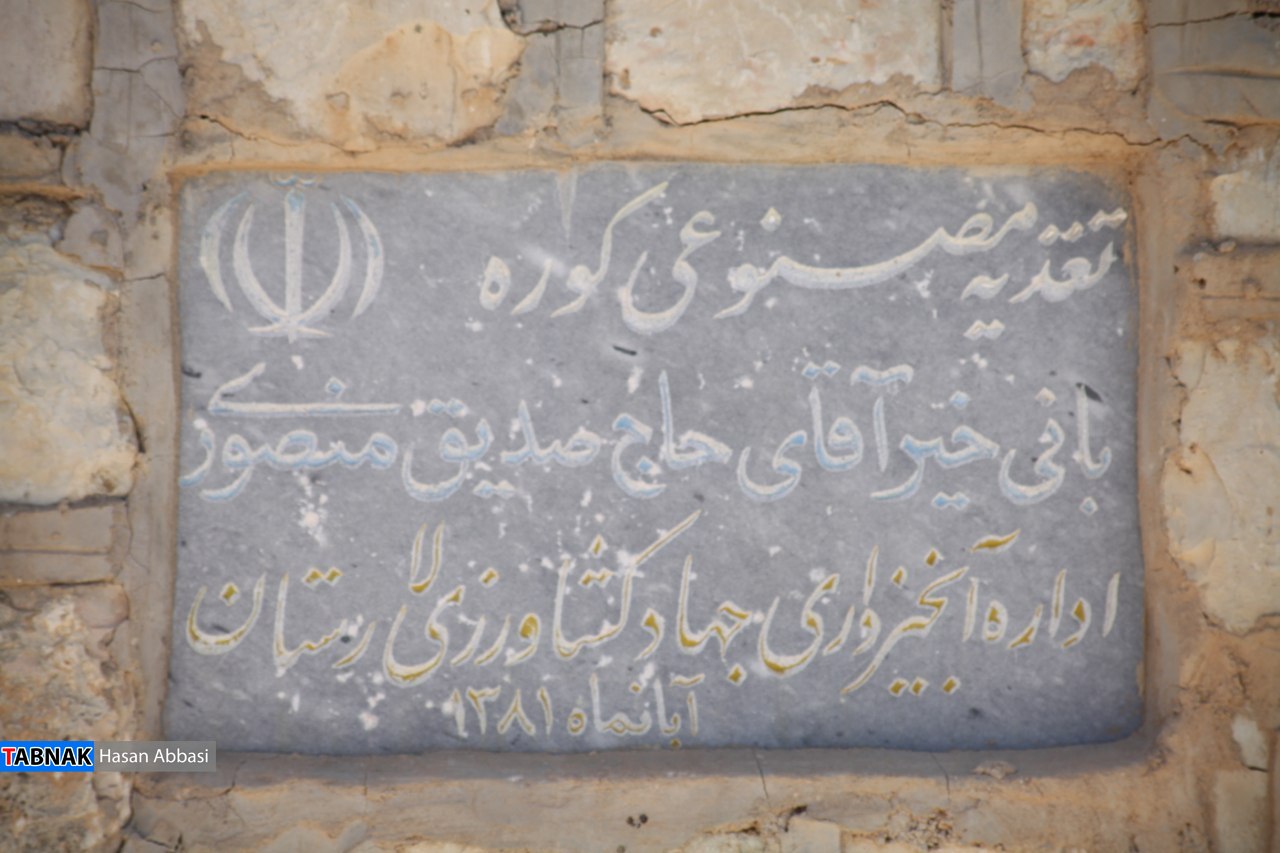 تغذیه مصنوعی کوره
بانی خیر آقای حاج صدیق منصوری
اداره آبخیزداری جهاد کشاورزی لارستان
آبانماه ۱۳۸۱
TABNAK Hasan Abbasi